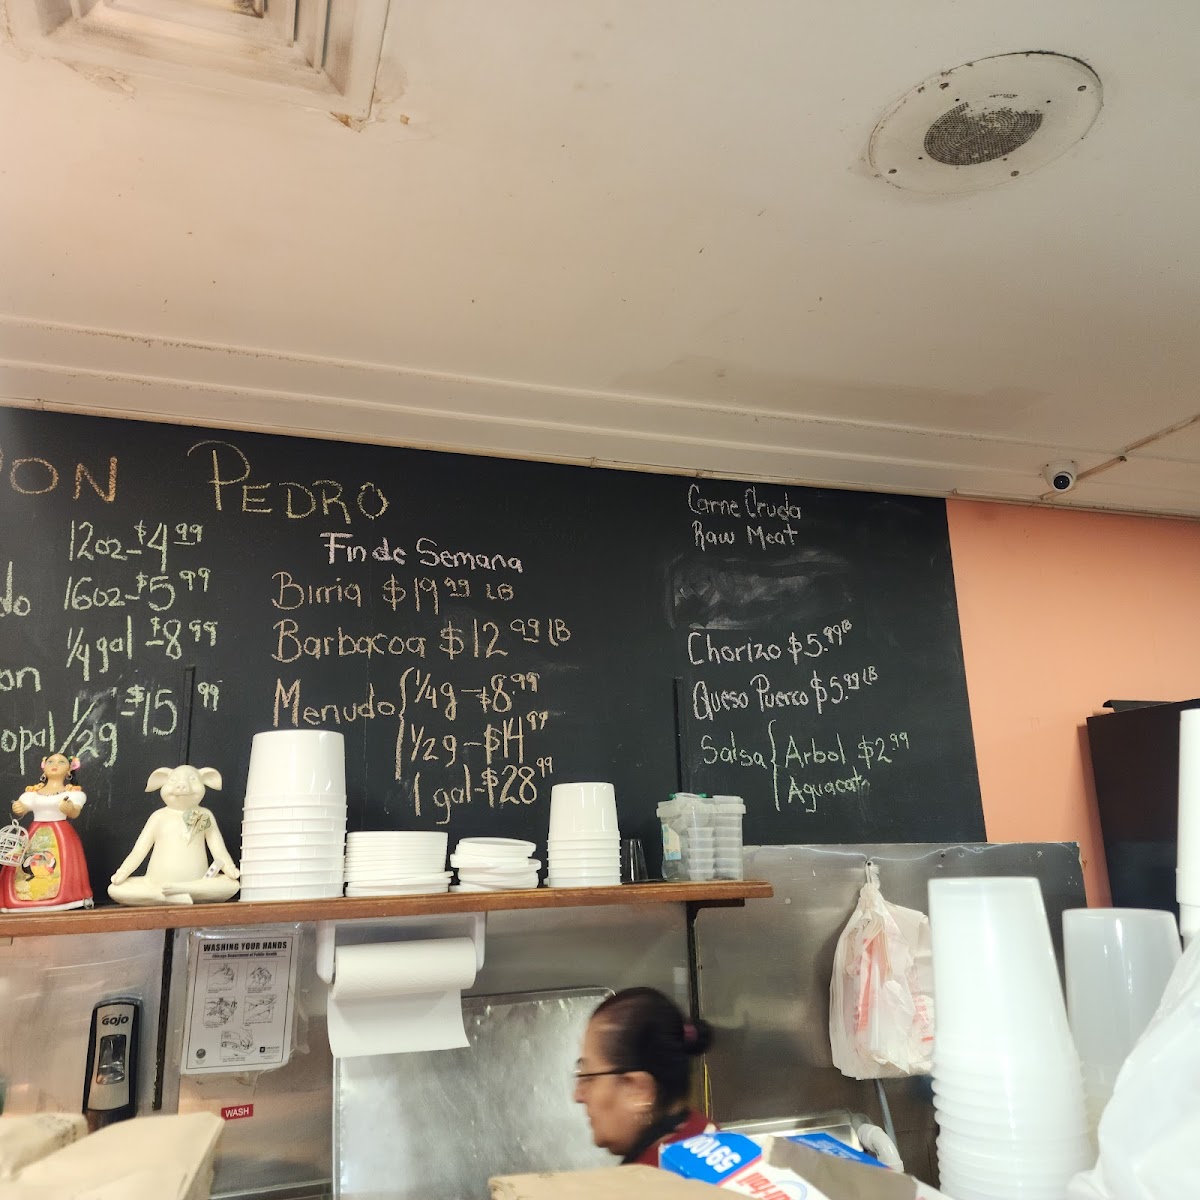 ON PEDRO
12oz-$4.99
do 16oz-$5.99
1/4gal $8.99
on
opal 1/2g-$15.99
Fin de Semana
Birria $19.99 LB
Barbacoa $12.99 LB
Menudo { 1/4g-$8.99
1/2g-$14.99
1 gal-$28.99
Carne Cruda
Raw Meat
Chorizo $5.99 LB
Queso Puerco $5.99 LB
Salsa { Arbol $2.99
Aguacate
WASHING YOUR HANDS
Chicago Department of Public Health
GOJO
WASH
59100